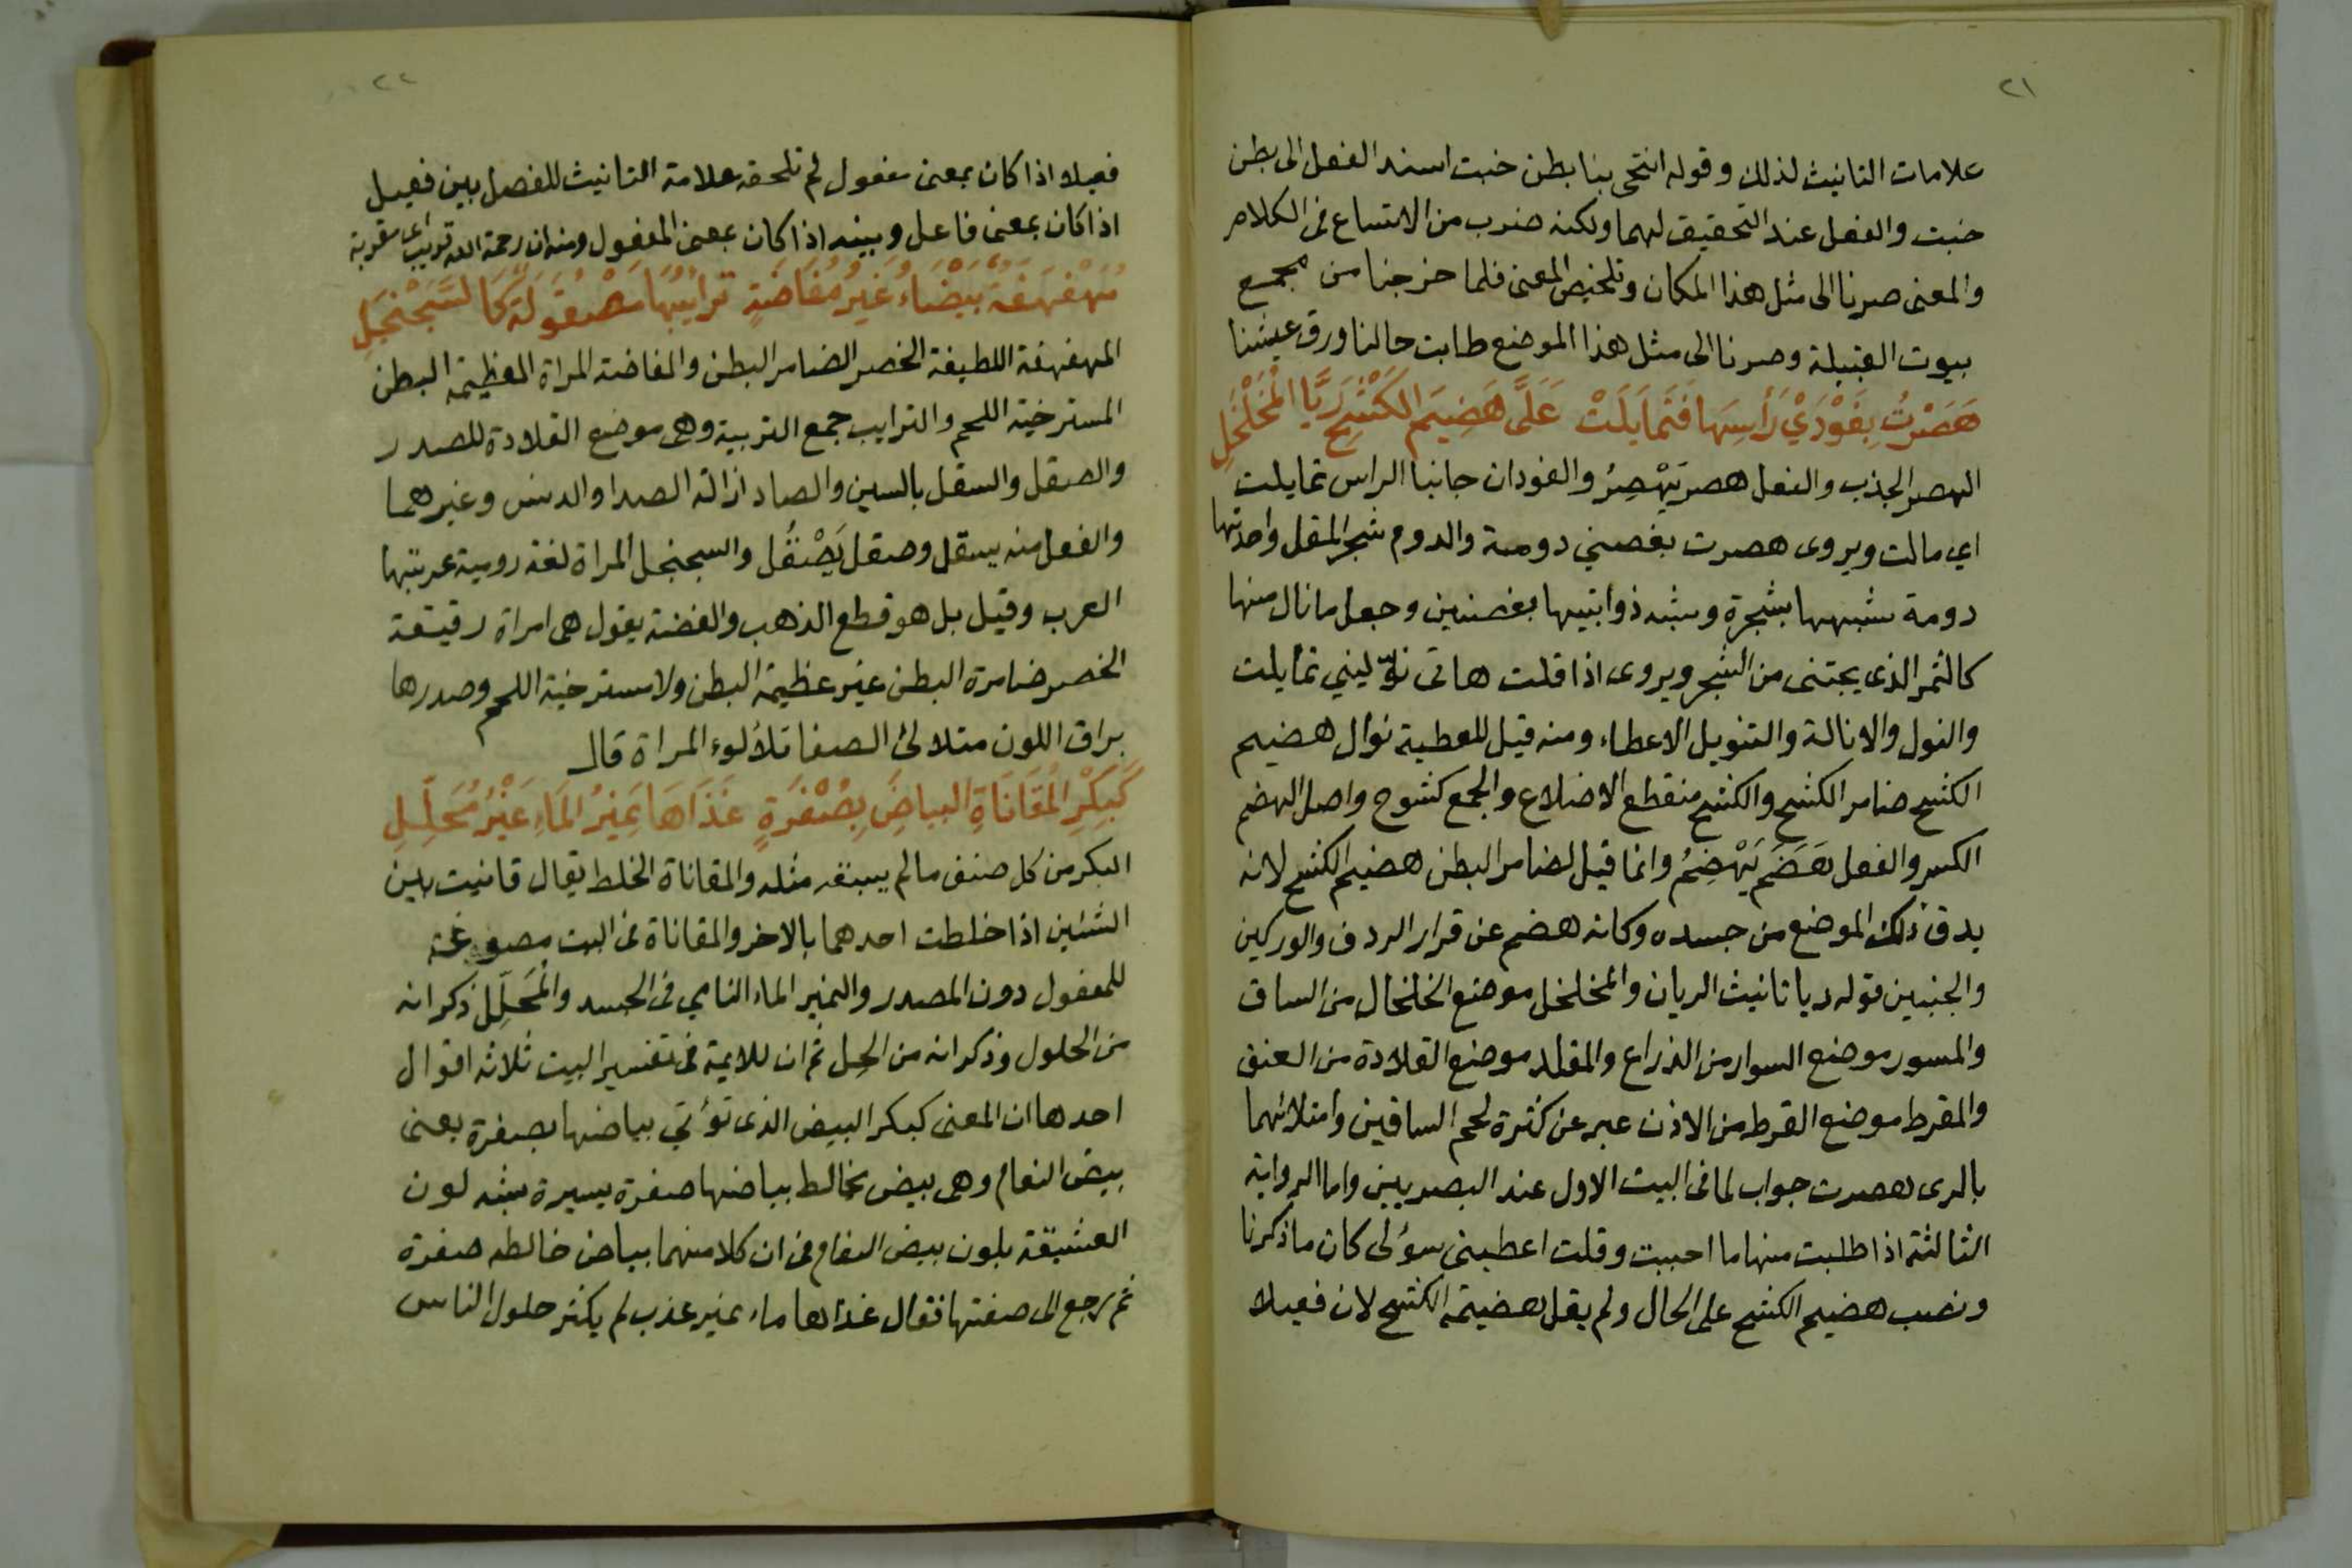 ٢١
علامات التانيث لذلك وقوله انتحى بنا بطن خبت اسند الفعل الى بطن
خبت والفعل عند التحقيق لهما ولكنه ضرب من الاتساع فى الكلام
والمعنى صرنا الى مثل هذا المكان وتلخيص المعنى فلما خرجنا من مجمع
بيوت القبيلة وصرنا الى مثل هذا الموضع طابت حالنا ورق عيشنا
هَصَرْتُ بِفَوْدَيْ رَأسِهَا فَتَمَايَلَتْ عَلَىَّ هَضِيَم الكَشْحِ رَيَّا الْمُخَلْخَلِ
الهصر الجذب والفعل هصر يَهْصِرُ والفودان جانبا الراس تمايلت
اي مالت ويروى هصرت بغصني دومة والدوم شجر المقل واحدتها
دومة شبهها بشجرة وشبه ذوابتيها بغصنين وجعل ما نال منها
كالثمر الذى يجتنى من الشجر ويروى اذا قلت هاتى نوّليني تمايلت
والنول والانالة والتنويل الاعطاء ومنه قيل للعطية نوال هضيم
الكشح ضامر الكشح والكشح منقطع الاضلاع والجمع كشوح واصل الهضم
الكسر والفعل هَضَمَ يَهْضِمُ وانما قيل لضامر البطن هضيم الكشح لانه
يدق ذلك الموضع من جسده وكانه هضم عن قرار الردف والوركين
والجنبين قوله ريا تانيث الريان والمخلخل موضع الخلخال من الساق
والمسور موضع السوار من الذراع والمقلد موضع القلادة من العنق
والمقرط موضع القرط من الاذن عبر عن كثرة لحم الساقين وامتلائهما
بالرى هصرت جواب لما فى البيت الاول عند البصريين واما الرواية
الثالثة اذا طلبت منها ما احببت وقلت اعطينى سؤلى كان ما ذكرنا
ونصب هضيم الكشح على الحال ولم يقل هضيمة الكشح لان فعيلا
٢٢
فعيلا اذا كان بمعنى مفعول لم تلحقه علامة التانيث للفصل بين فعيل
اذا كان بمعنى فاعل وبينه اذا كان بمعنى المفعول ومنه ان رحمة الله قريب اى مقربة
مُهَفْهَفَةٌ بَيْضَاءُ غَيرُ مُفَاضَةٍ تَرائِبُهَا مَصْقُولَةٌ كَالسَّجَنْجَلِ
المهفهفة اللطيفة الخصر الضامر البطن والمفاضة المراة العظيمة البطن
المسترخية اللحم والترايب جمع التريبة وهى موضع القلادة للصدر
والصقل والسقل بالسين والصاد ازالة الصدا والدنس وغيرهما
والفعل منه يسقل وصقل يَصْقُل والسجنجل المراة لغة رومية عربتها
العرب وقيل بل هو قطع الذهب والفضة يقول هى امراة رقيقة
الخصر ضامرة البطن غير عظيمة البطن ولا مسترخية اللحم وصدرها
براق اللون متلالئ الصفا تلألوء المراة قال
كَبِكْرِ الْمُقَانَاةِ البياضَ بِصُفْرَةٍ غَذَاهَا نَمِيْرُ المَاءِ غَيْرُ مُحَلِّلِ
البكر من كل صنف ما لم يسبقه مثله والمقاناة الخلط يقال قانيت بين
الشئين اذا خلطت احدهما بالاخر والمقاناة فى البيت مصوغة
للمفعول دون المصدر والنمير الماء النامي فى الجسد والْمُحَلِّل ذكر انه
من الحلول وذكر انه من الحِل ثم ان للايمة فى تفسير البيت ثلاثه اقوال
احدها ان المعنى كبكر البيض الذى تؤتي بياضها بصفرة يعنى
بيض النعام وهى بيض تخالط بياضها صفرة يسيرة شبه لون
العشيقة بلون بيض النعام فى ان كلا منهما بياض خالطه صفرة
ثم رجع الى صفتها فقال غذاها ماء نمير عذب لم يكثر حلول الناس